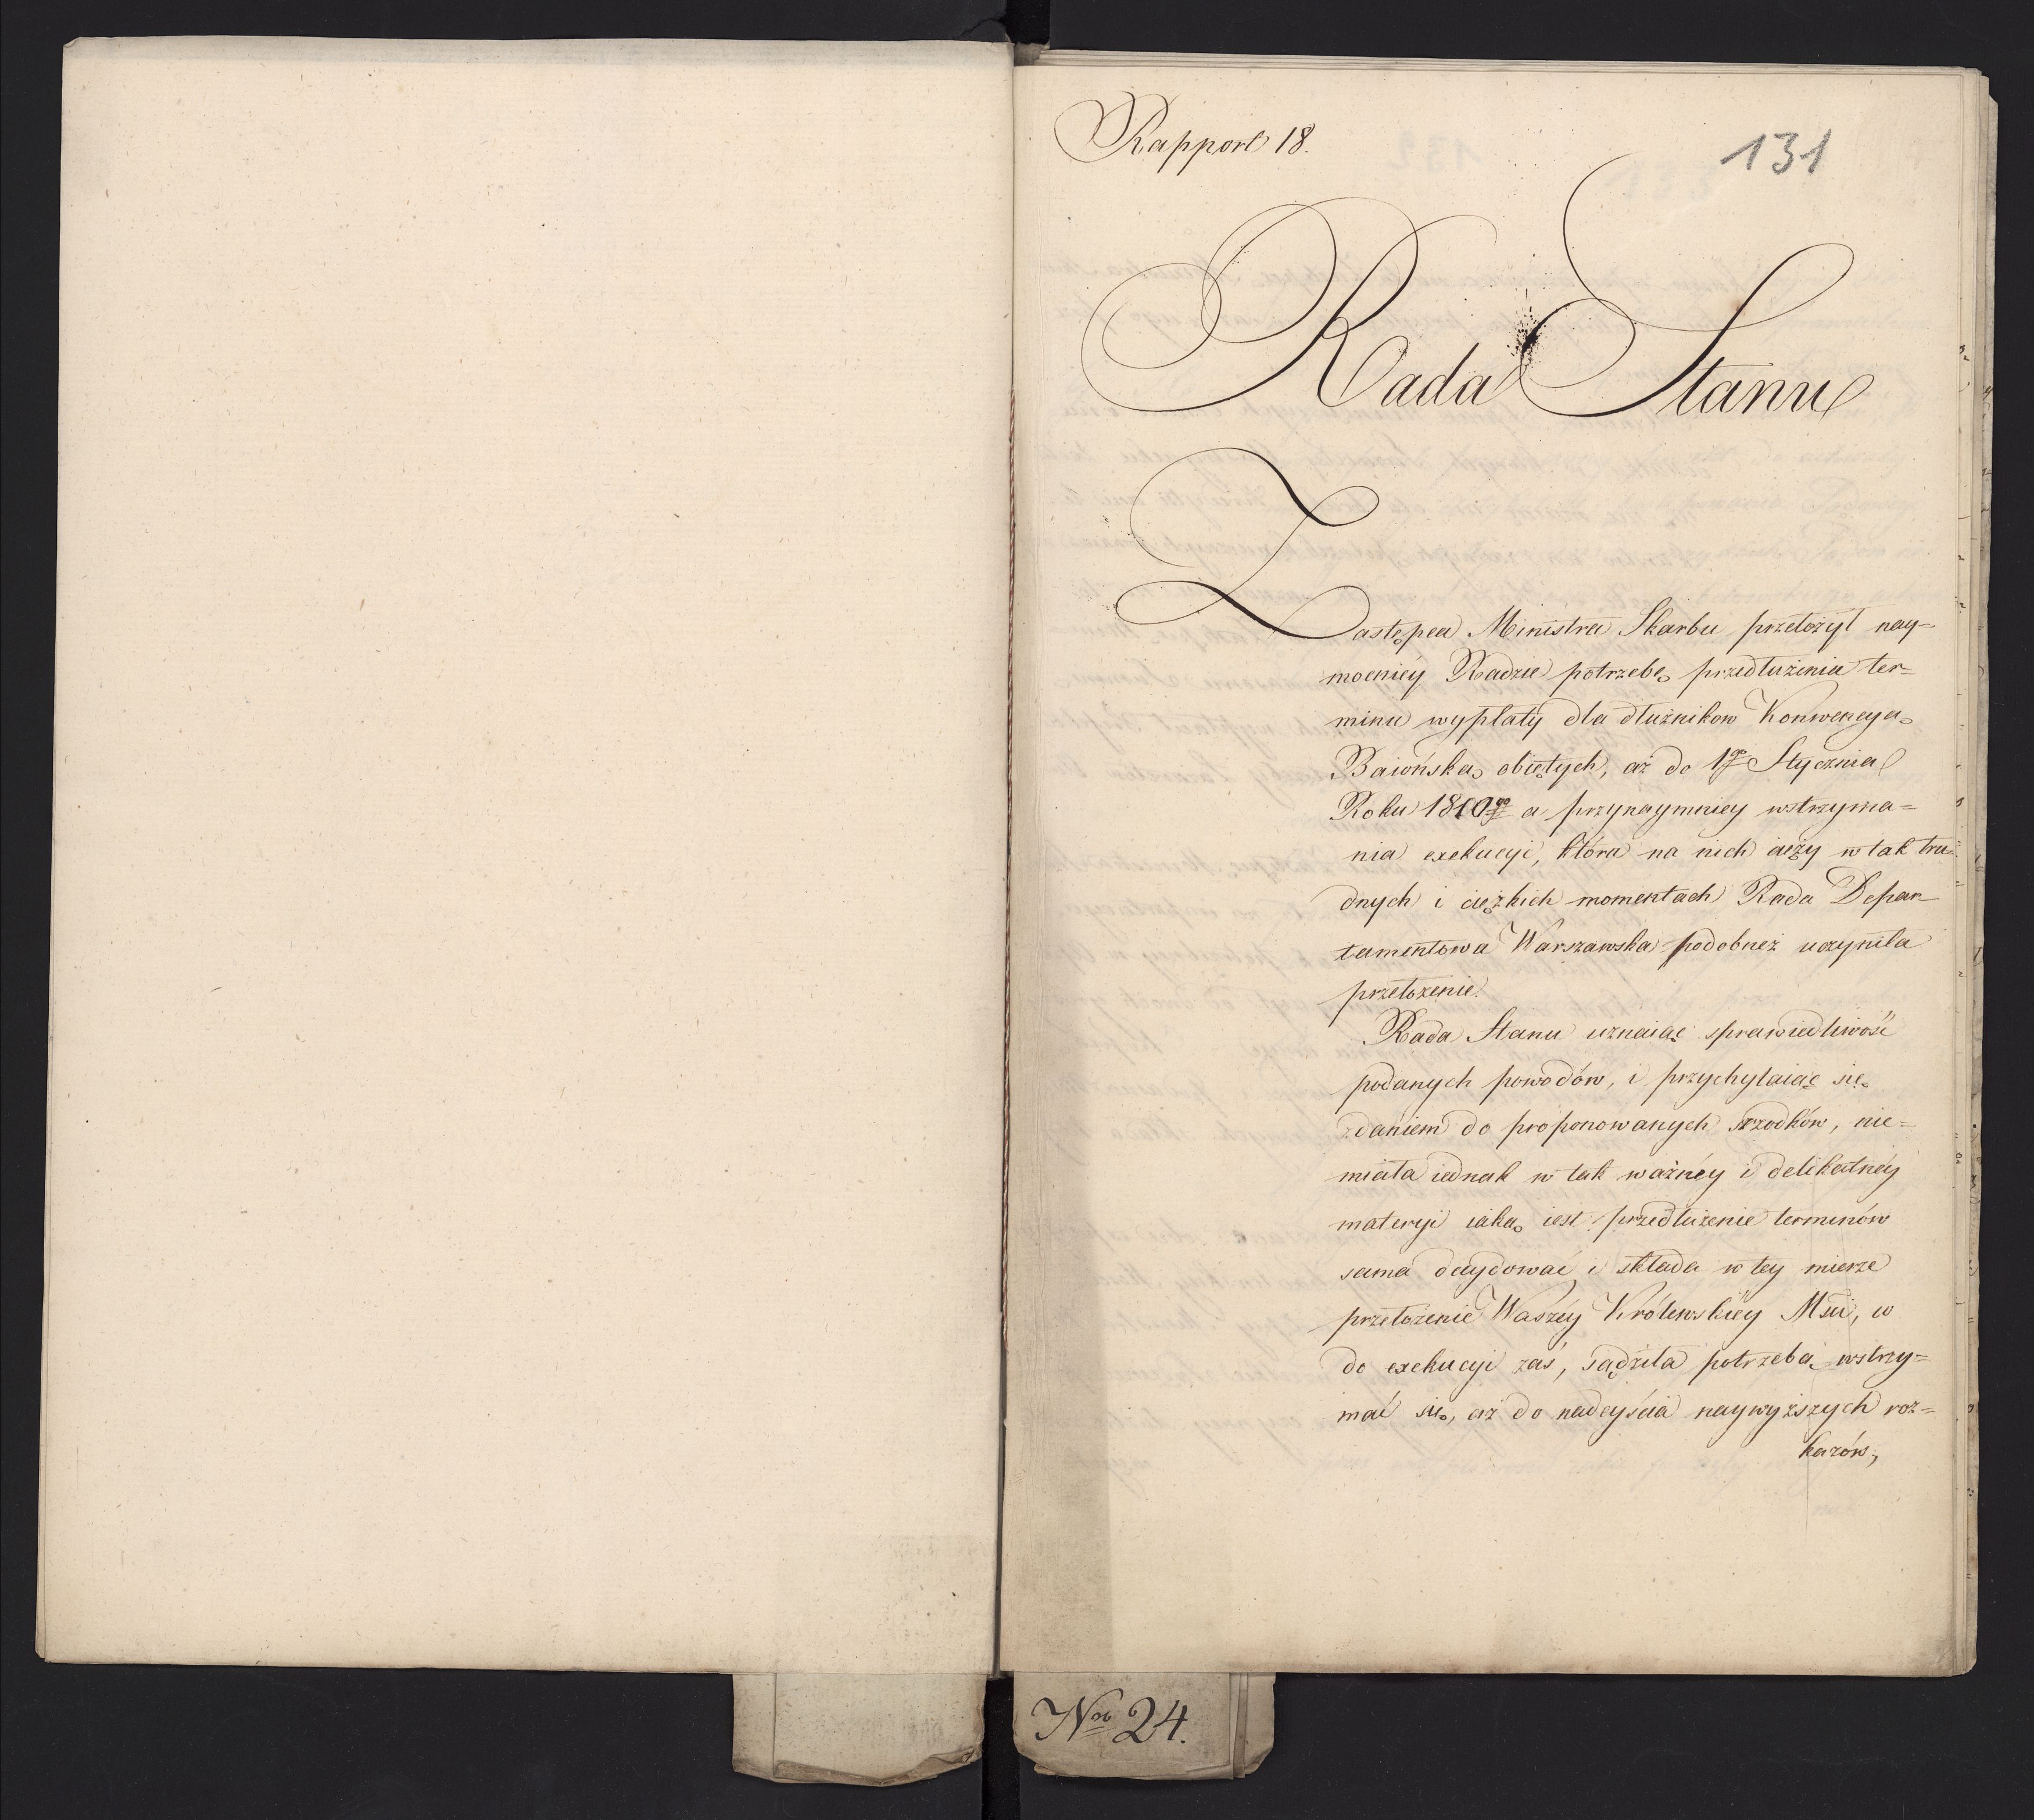 Rapport 18.
131
Rada Stanu
Zastępca Ministra Skarbu przełożył nay=
mocniéy Radzie potrzebę przedłużenia ter=
minu wypłaty dla dłużnikow Konwencyą
Baiońską obiętych, aż do 1go Stycznia
Roku 1810go a przynaymniey wstrzyma=
nia exekucyi, która na nich cięży w tak tru=
dnych i ciężkich momentach Rada Depar
tamentowa Warszawska podobneż uczyniła
przełożenie.
Rada Stanu uznaiąc sprawiedliwość
podanych powodów, i przychylaiąc się
zdaniem do proponowanych srzodków, nie=
miała iednak w tak ważnéy i delikatnéy
materyi iaką iest przedłużenie terminów
sama decydować i składa w tey mierze
przełożenie Waszéy Królewskiéy Mści, w
do exekucyi zaś, sądziła potrzebą wstrzy=
mać się, aż do nadeyścia naywyższych roz=
kazów,
Nro 24.